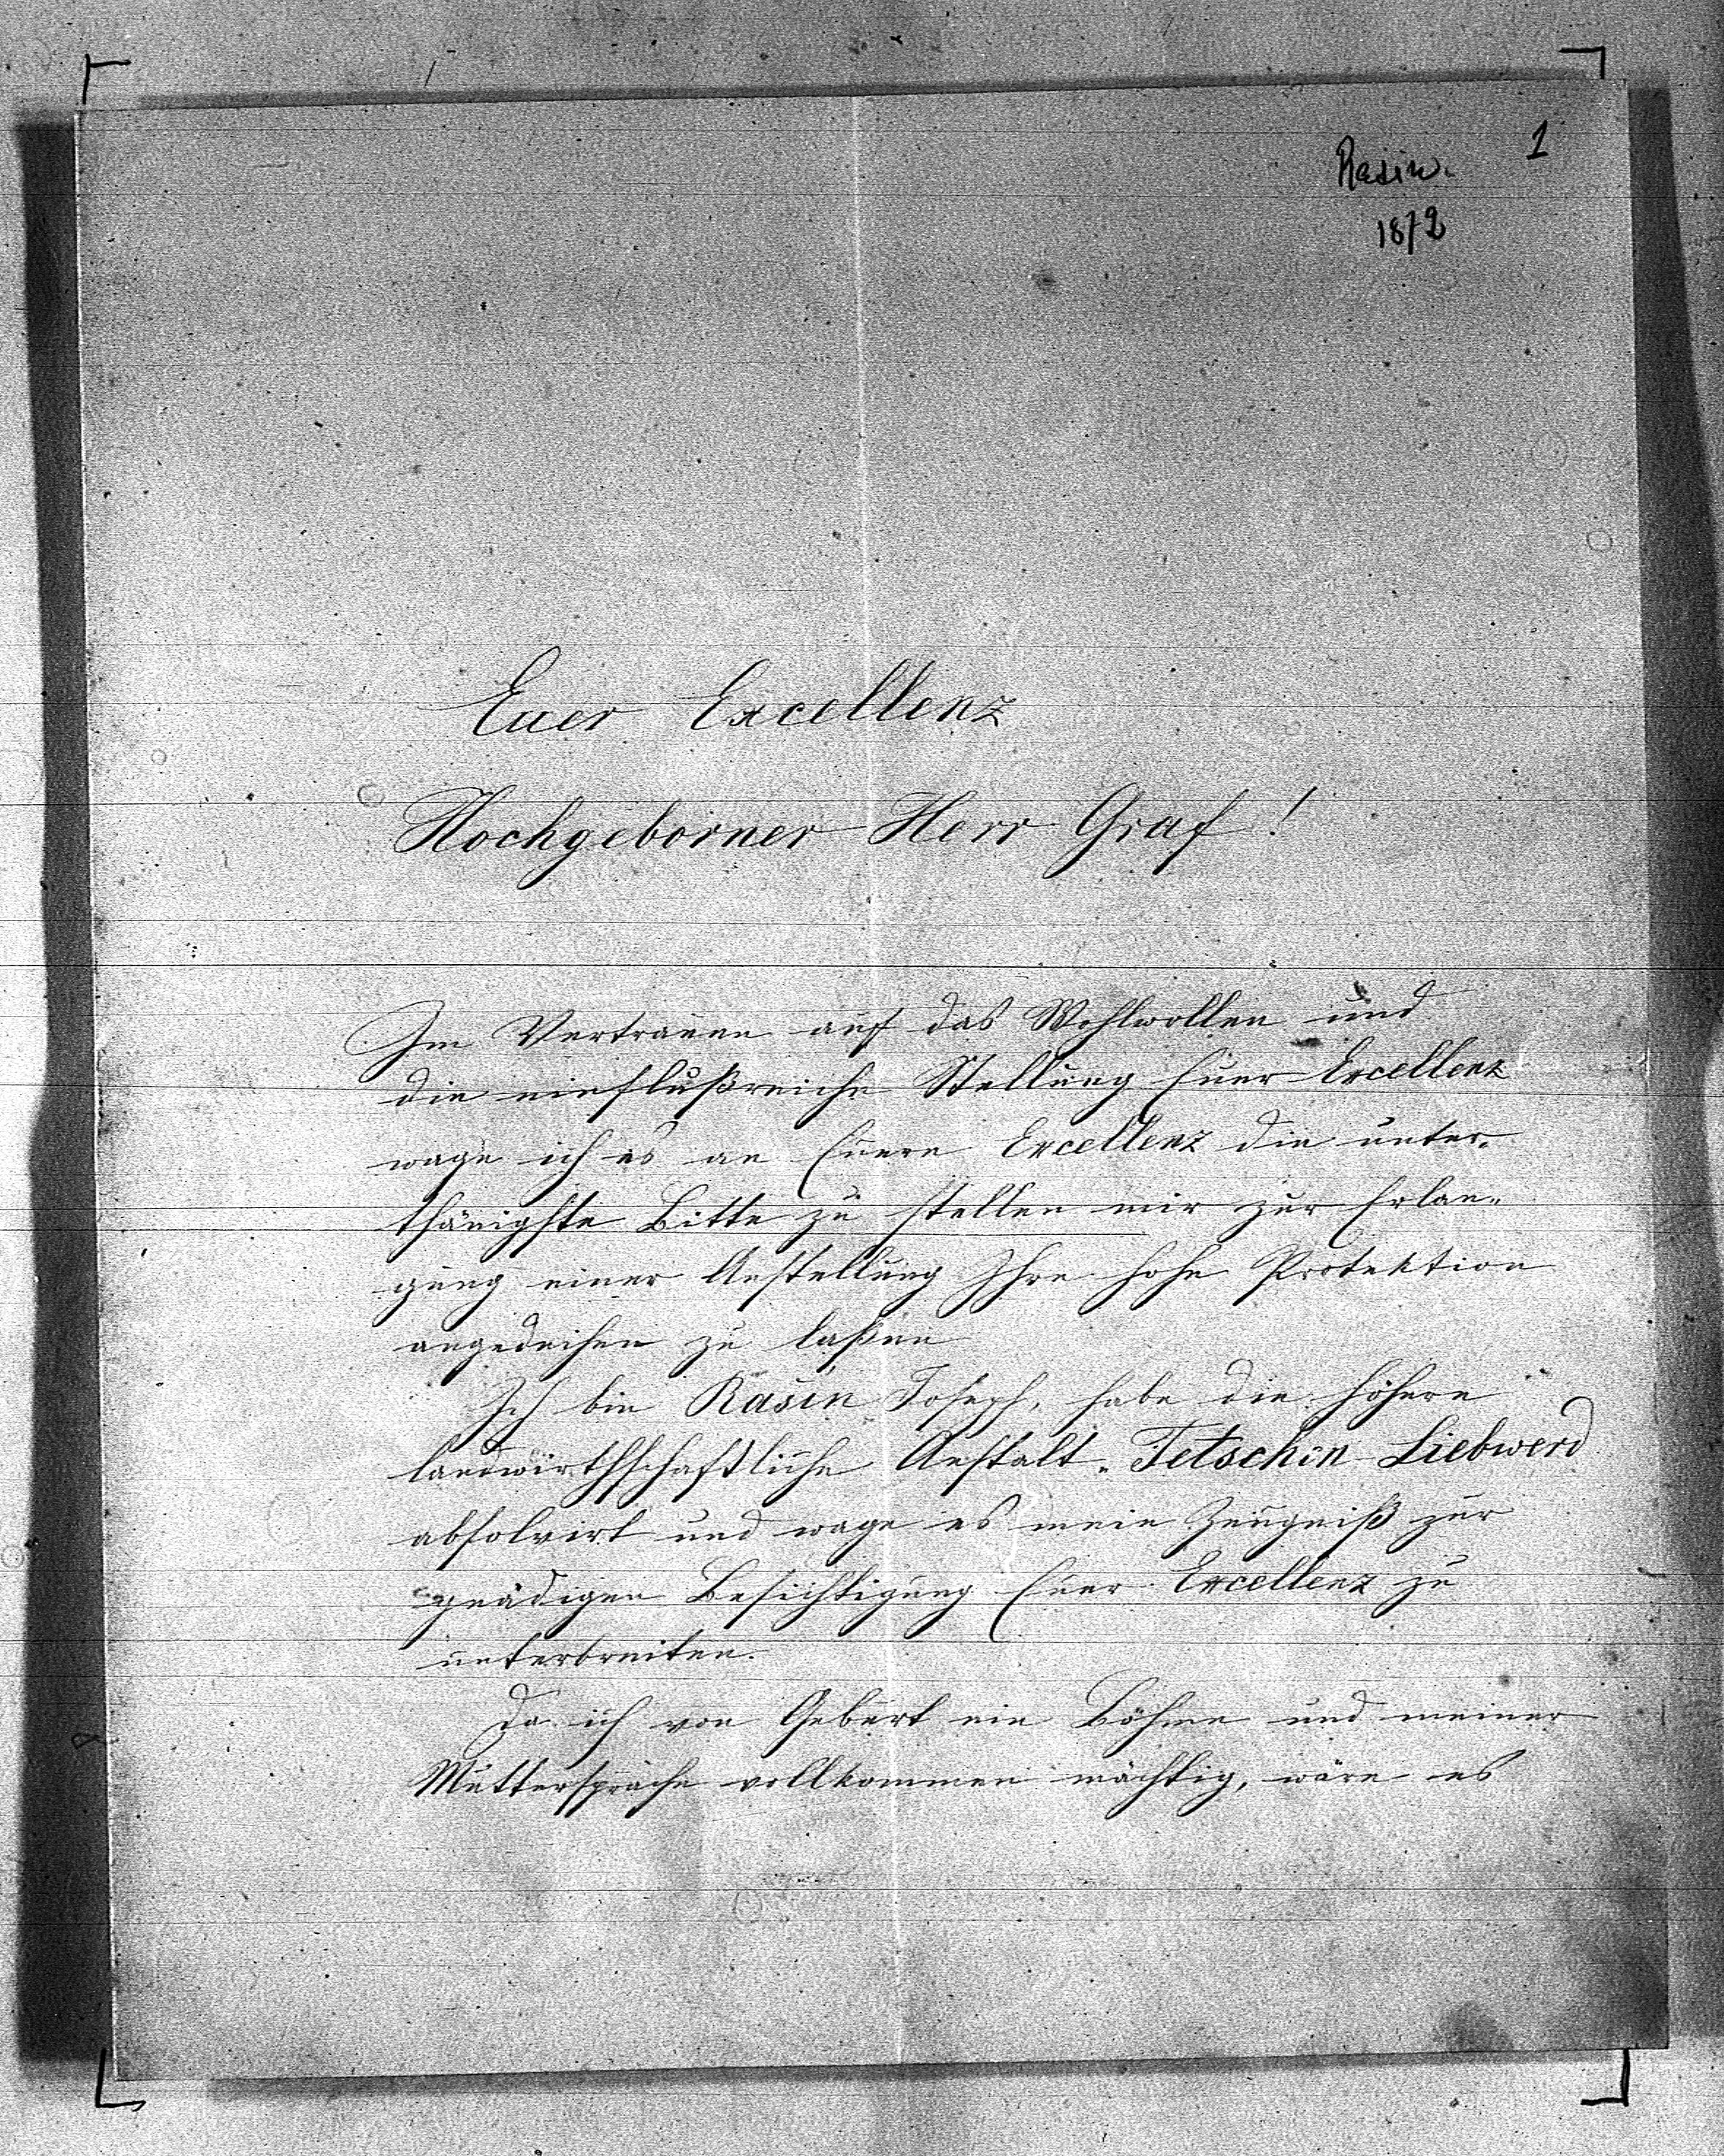 1
Rasin.
1872
Euer Excellenz
Hochgeborner Herr Graf!
Im Vertrauen auf das Wohlwollen und
die einflußreiche Stellung Euer Excellenz
wage ich es an Euere Excellenz die unter-
thänigste Bitte zu stellen mir zur Erlan-
gung einer Anstellung Ihre hohe Protektion
angedeihen zu laßen
Ich bin Rašin Joseph, habe die höhere
landwirthschaftliche Anstalt Tetschen-Liebwerd
absolvirt und wage es mein Zeugniß zur
gnädigen Besichtigung Euer Excellenz zu
unterbreiten.
Da ich von Geburt ein Böhme und meiner
Muttersprache vollkommen mächtig, wäre es